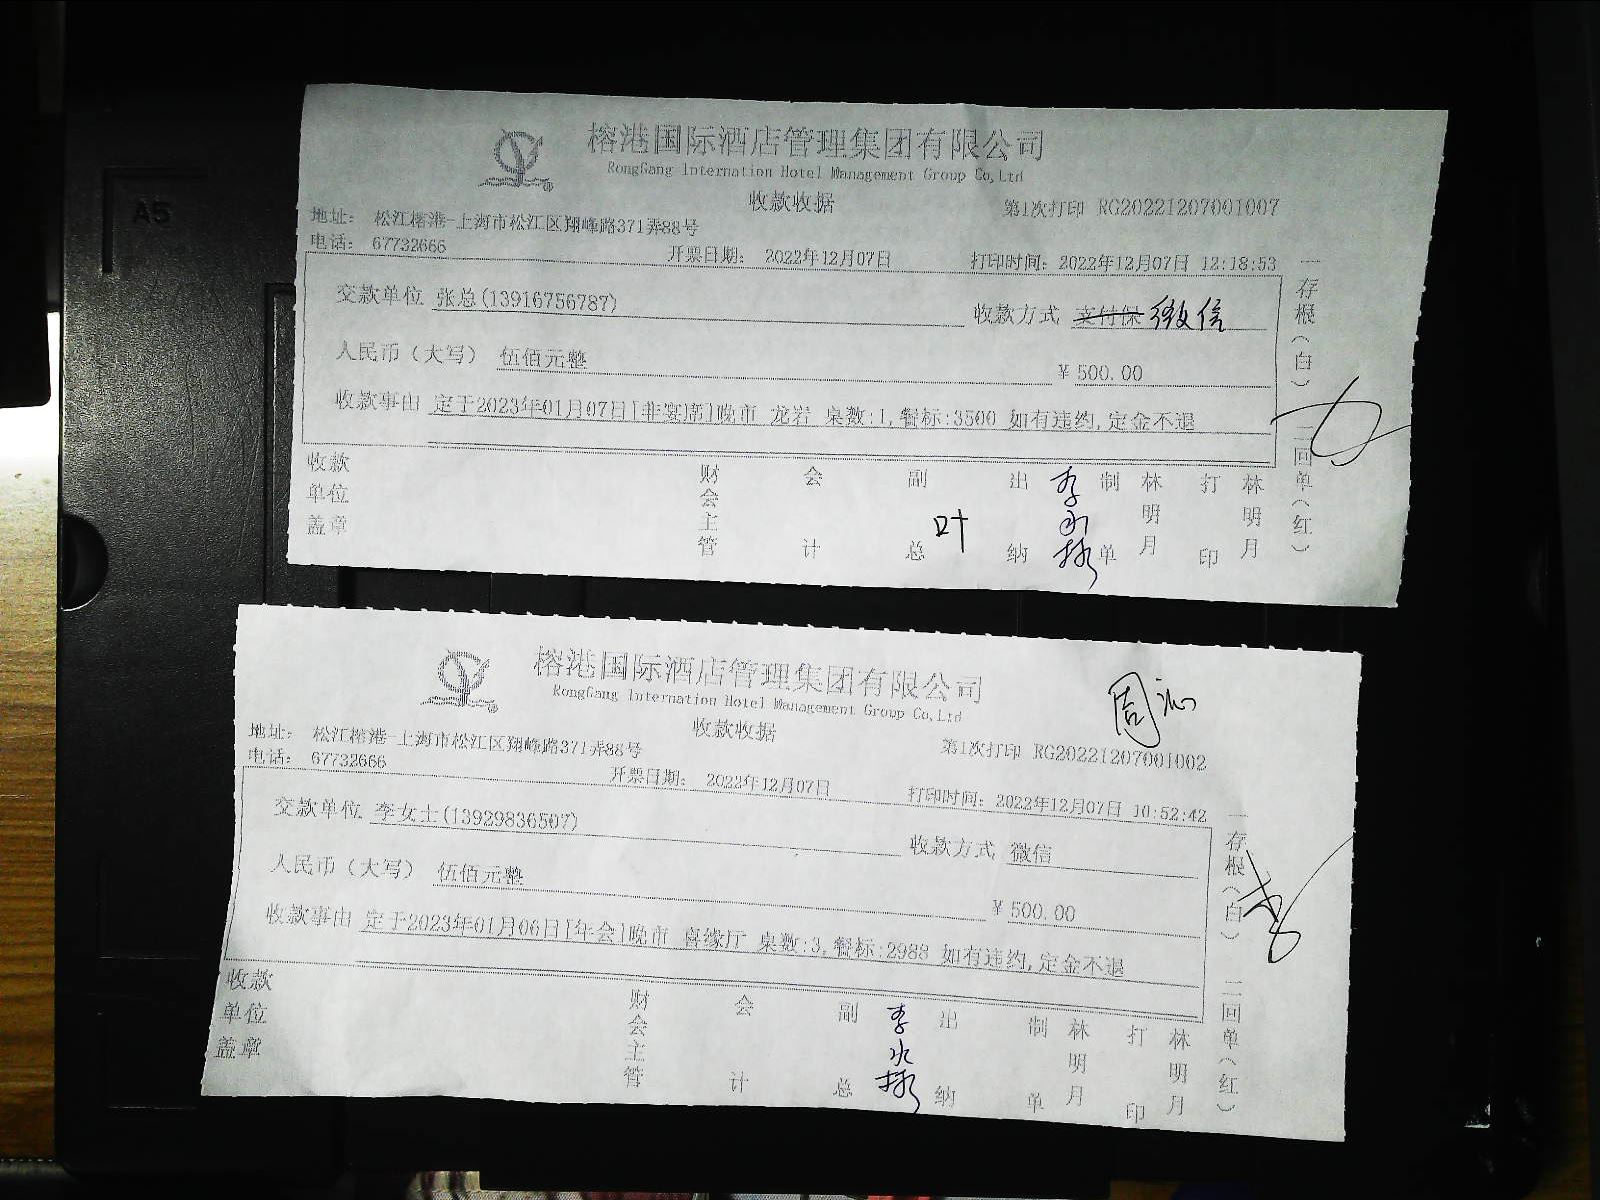 A5
榕港国际酒店管理集团有限公司
RongGang Internation Hotel Management Group Co,Ltd
收款收据
第1次打印 RG20221207001007
地址： 松江榕港-上海市松江区翔峰路371弄88号
电话： 67732666
开票日期： 2022年12月07日
打印时间：2022年12月07日 12:18:53
交款单位 张总(13916756787)
收款方式 支付保 微信
人民币（大写） 伍佰元整
¥ 500.00
收款事由 定于2023年01月07日[非宴席]晚市 龙岩 桌数:1,餐标:3500 如有违约,定金不退
一存根（白） 二回单（红）
收款单位盖章
财会主管
会计
副总 叶
出纳 李
制单 林明月
打印 林明月
榕港国际酒店管理集团有限公司
RongGang Internation Hotel Management Group Co,Ltd
周沁
收款收据
第1次打印 RG20221207001002
地址： 松江榕港-上海市松江区翔峰路371弄88号
电话： 67732666
开票日期： 2022年12月07日
打印时间：2022年12月07日 10:52:42
交款单位 李女士(13929836507)
收款方式 微信
人民币（大写） 伍佰元整
¥ 500.00
收款事由 定于2023年01月06日[年会]晚市 喜缘厅 桌数:3,餐标:2988 如有违约,定金不退
一存根（白） 二回单（红）
收款单位盖章
财会主管
会计
副总 李
出纳
制单 林明月
打印 林明月